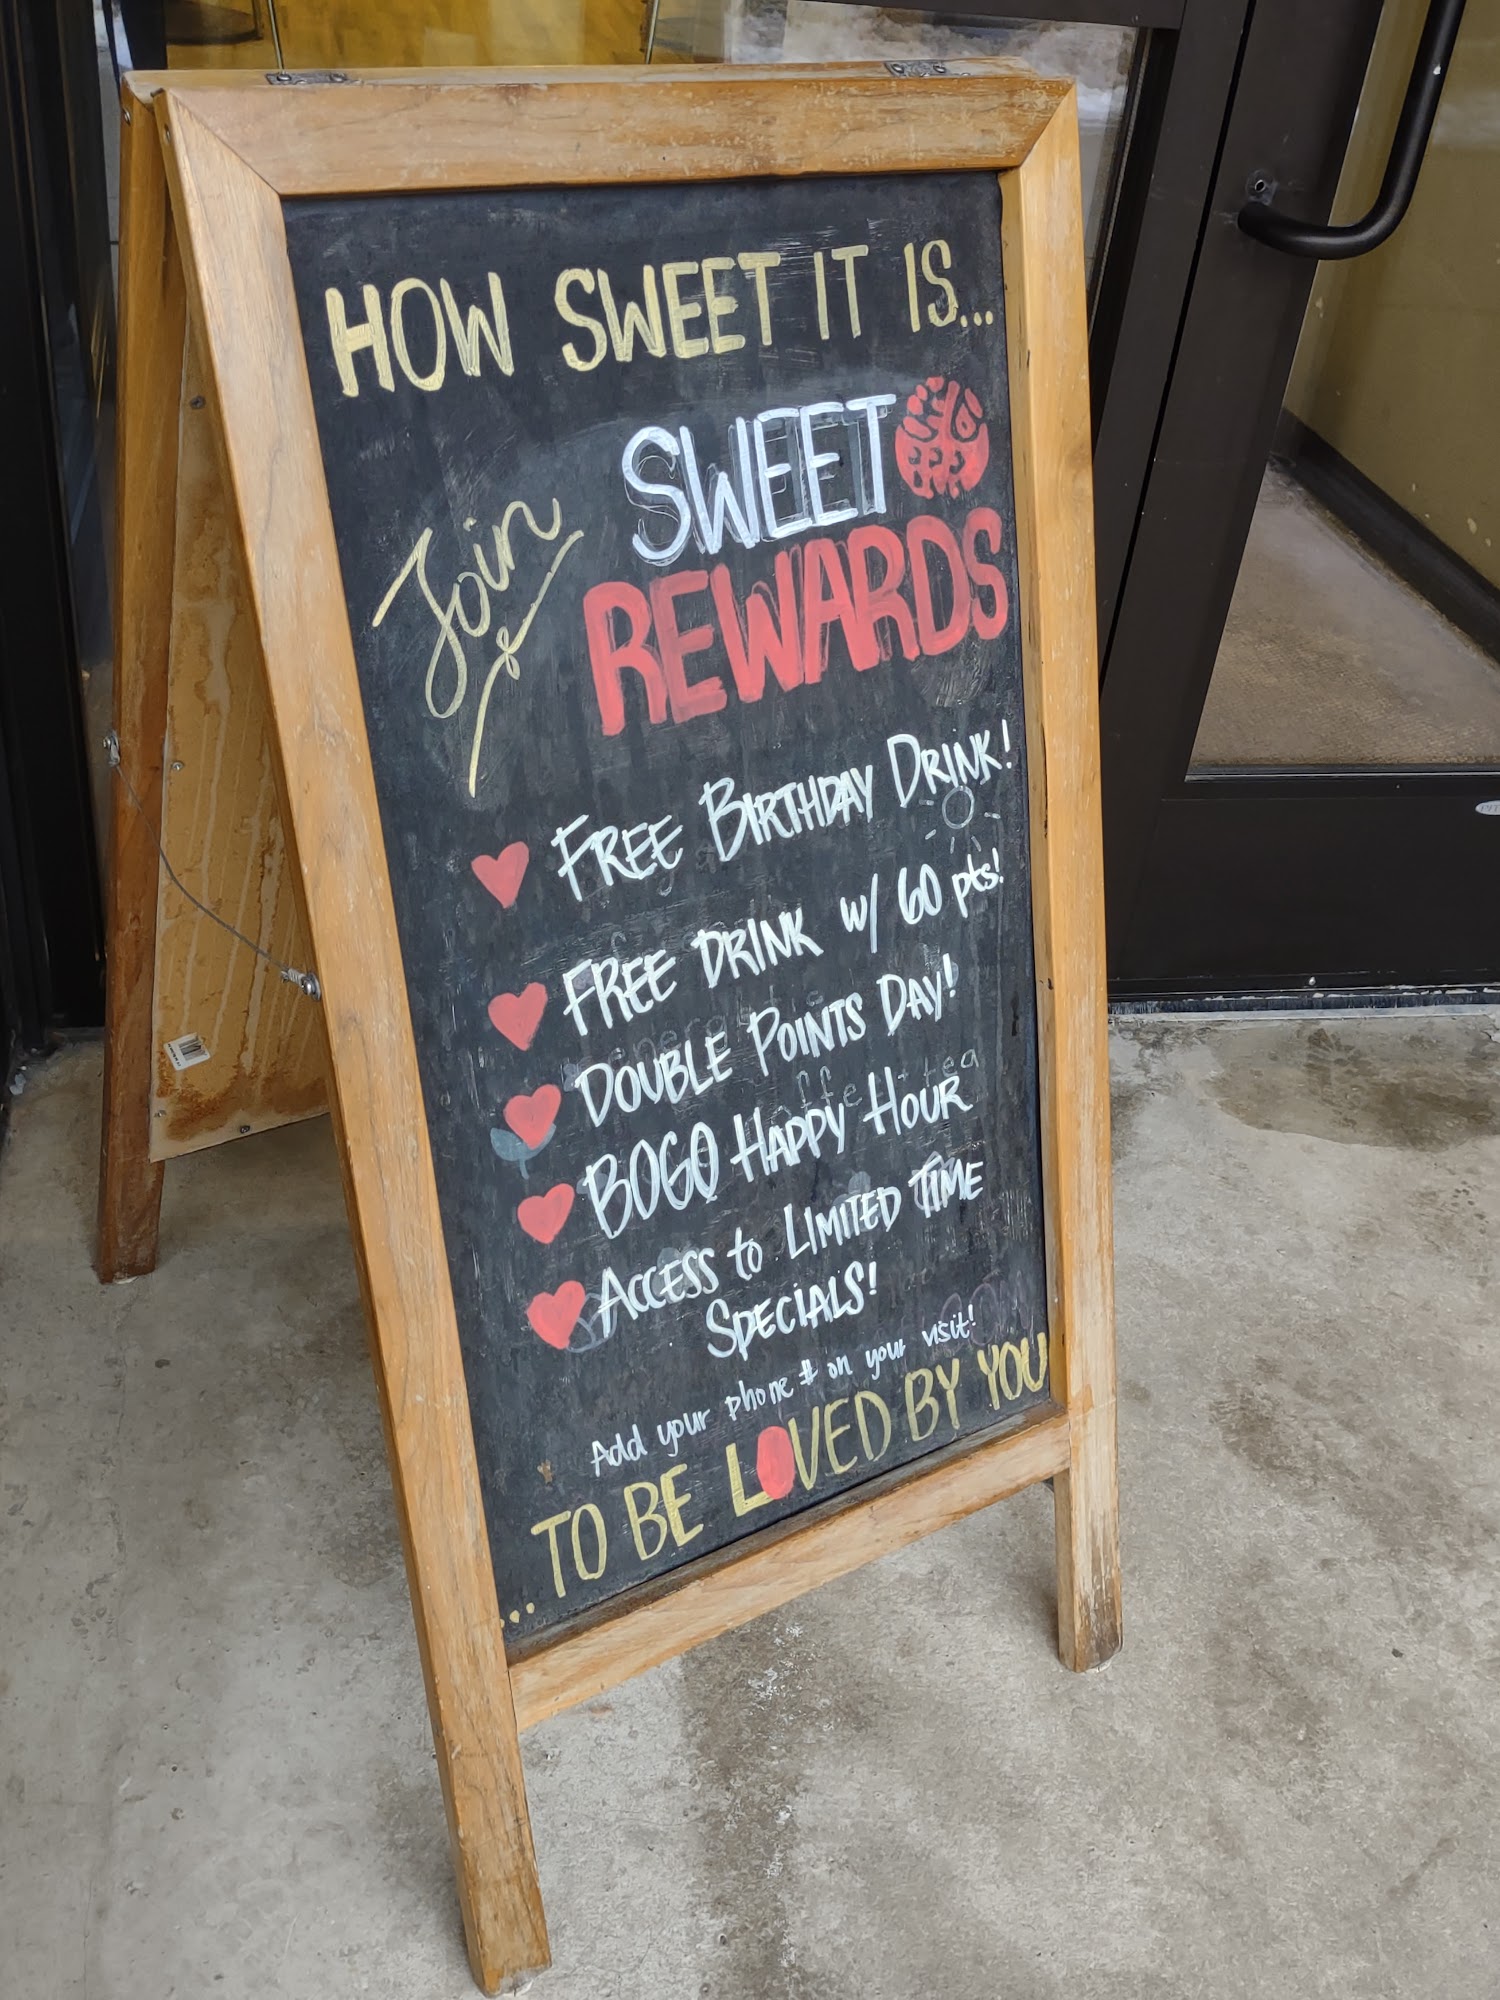 HOW SWEET IT IS...
Join
SWEET
REWARDS
FREE BIRTHDAY DRINK!
FREE DRINK w/ 60 pts!
DOUBLE POINTS DAY!
BOGO HAPPY HOUR
ACCESS to LIMITED TIME
SPECIALS!
Add your phone # on your visit!
...TO BE LOVED BY YOU